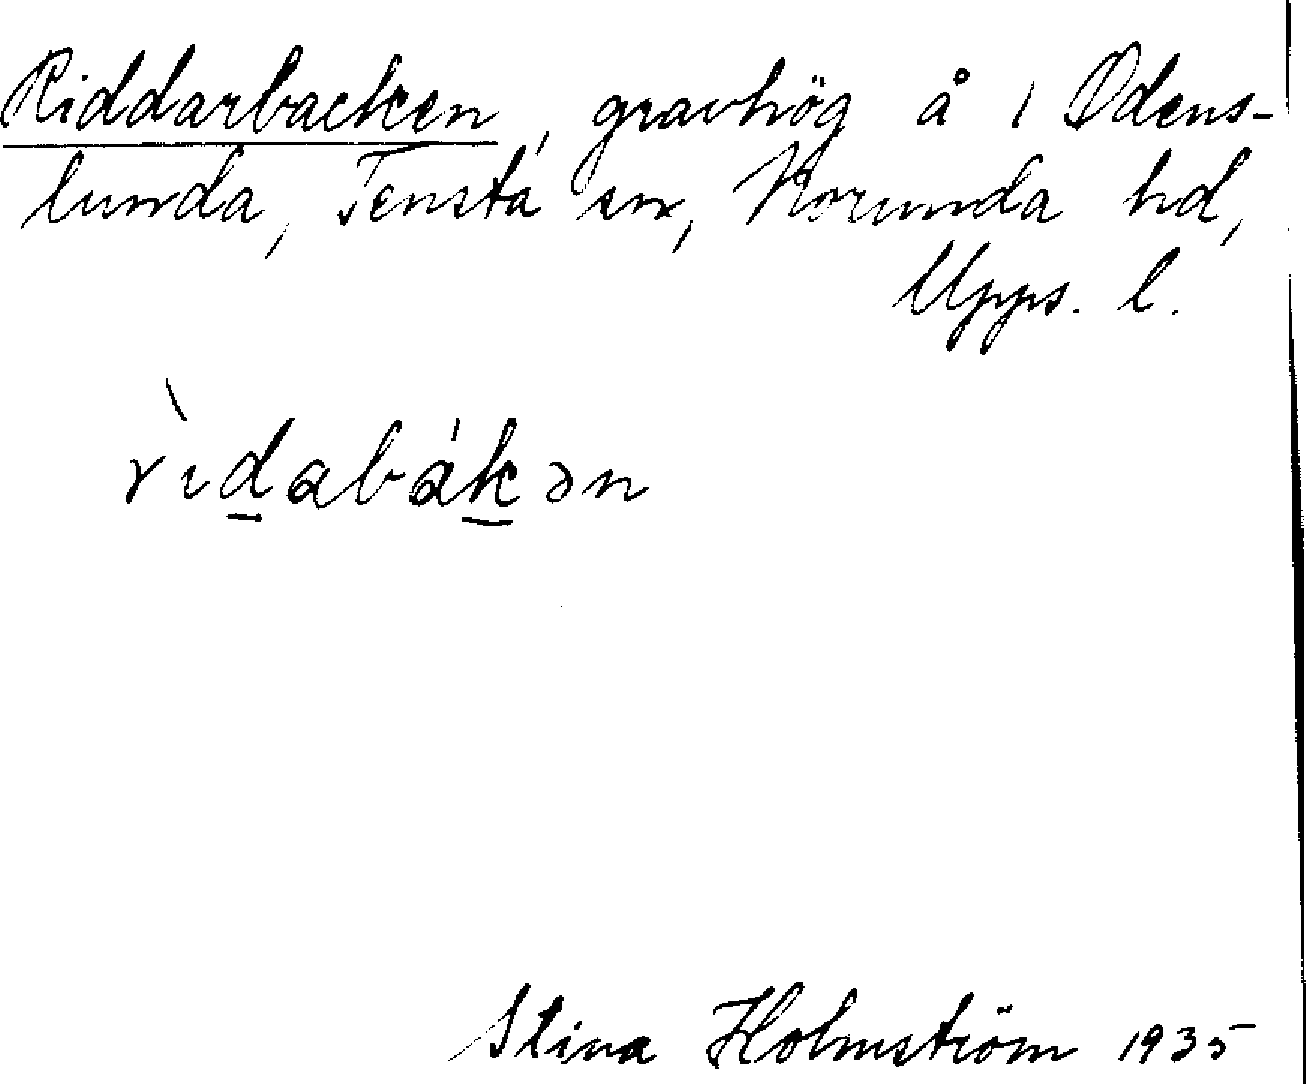 Riddarbacken, gravhög å 1 Odens-
lunda, Tensta sn, Norunda hd,
Upps. l.
rìdabákən
Stina Holmström 1935